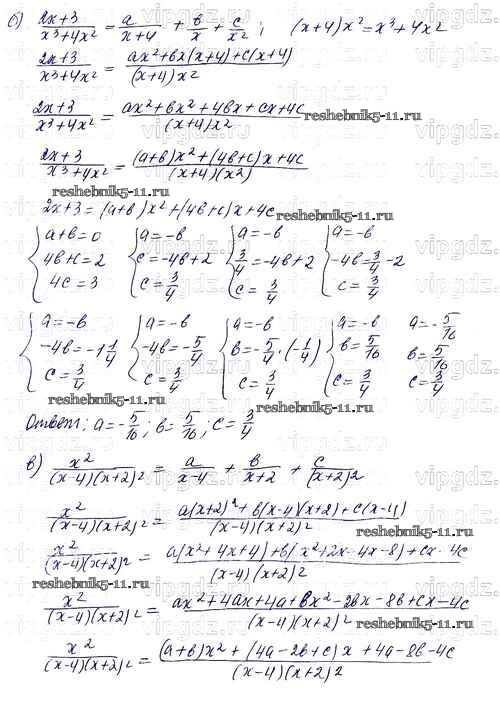 б) (2x+3)/(x³+4x²) = a/(x+4) + b/x + c/x² ; (x+4)x² = x³+4x²
(2x+3)/(x³+4x²) = (ax²+bx(x+4)+c(x+4))/((x+4)x²)
(2x+3)/(x³+4x²) = (ax²+bx²+4bx+cx+4c)/((x+4)x²)
reshebnik5-11.ru
(2x+3)/(x³+4x²) = ((a+b)x²+(4b+c)x+4c)/((x+4)(x²))
reshebnik5-11.ru
2x+3=(a+b)x²+(4b+c)x+4c
reshebnik5-11.ru
{a+b=0 {a=-b {a=-b {a=-b
4b+c=2 c=-4b+2 3/4=-4b+2 -4b=3/4-2
4c=3 c=3/4 c=3/4 c=3/4
{a=-b {a=-b {a=-b {a=-b a=-5/16
-4b=-1 1/4 -4b=-5/4 b=-5/4·(-1/4) b=5/16 b=5/16
c=3/4 c=3/4 c=3/4 c=3/4 c=3/4
reshebnik5-11.ru
reshebnik5-11.ru
Ответ: a=-5/16; b=5/16; c=3/4
в) x²/((x-4)(x+2)²) = a/(x-4) + b/(x+2) + c/(x+2)²
x²/((x-4)(x+2)²) = (a(x+2)²+b(x-4)(x+2)+c(x-4))/((x-4)(x+2)²)
x²/((x-4)(x+2)²) = (a(x²+4x+4)+b(x²+2x-4x-8)+cx-4c)/((x-4)(x+2)²)
reshebnik5-11.ru
x²/((x-4)(x+2)²) = (ax²+4ax+4a+bx²-2bx-8b+cx-4c)/((x-4)(x+2)²)
reshebnik5-11.ru
x²/((x-4)(x+2)²) = ((a+b)x²+(4a-2b+c)x+4a-8b-4c)/((x-4)(x+2)²)
vipgdz.ru